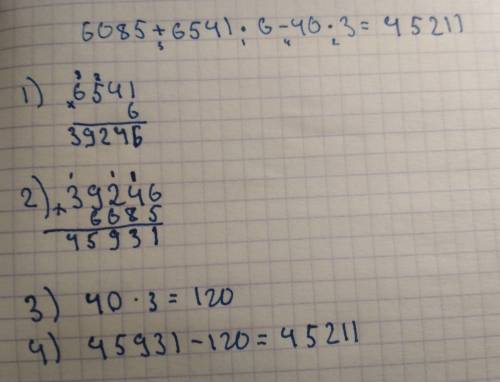 6085+6541·6-40·3=45211
3 1 4 2
1) 6541
× 6
39246
2) 39246
+ 6685
45931
3) 40·3=120
4) 45931-120=45211